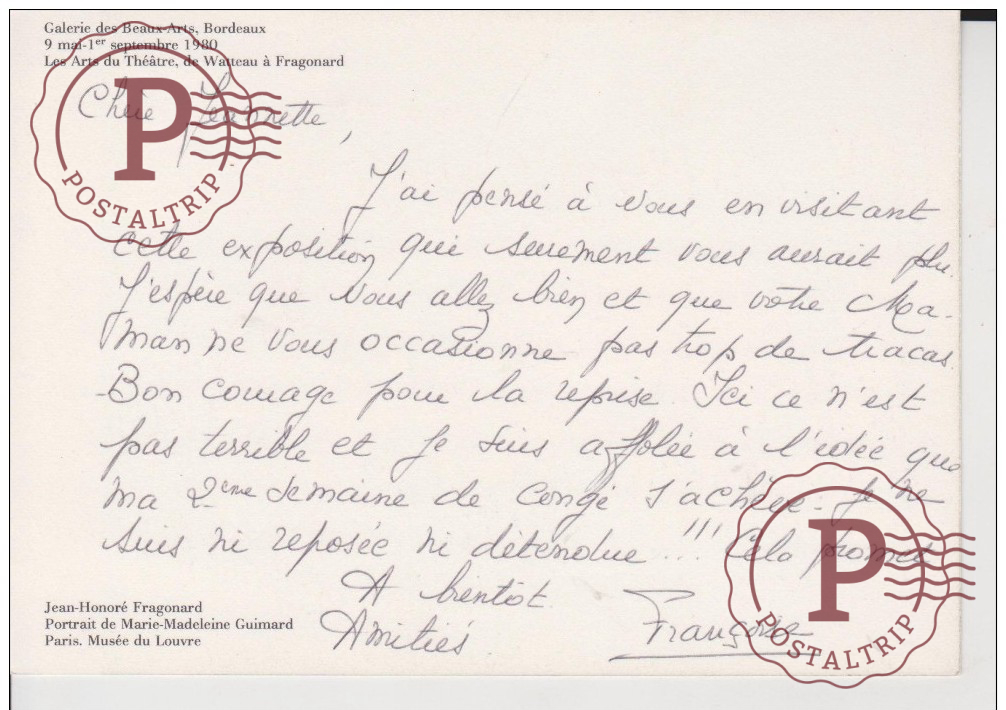 Galerie des Beaux-Arts, Bordeaux
9 mai-1er septembre 1980
Les Arts du Théâtre, de Watteau à Fragonard
Chère Jeannette,
J'ai pensé à vous en visitant
cette exposition qui surement vous aurait plu.
J'espère que vous allez bien et que votre Ma-
man ne vous occasionne pas trop de tracas.
Bon courage pour la reprise. Ici ce n'est
pas terrible et je suis affolée à l'idée que
ma 2ème semaine de congé s'achève. Je ne
suis ni reposée ni détendue !!! Cela promet
A bientôt.
Amitiés
Françoise
Jean-Honoré Fragonard
Portrait de Marie-Madeleine Guimard
Paris. Musée du Louvre
P
POSTALTRIP
P
POSTALTRIP